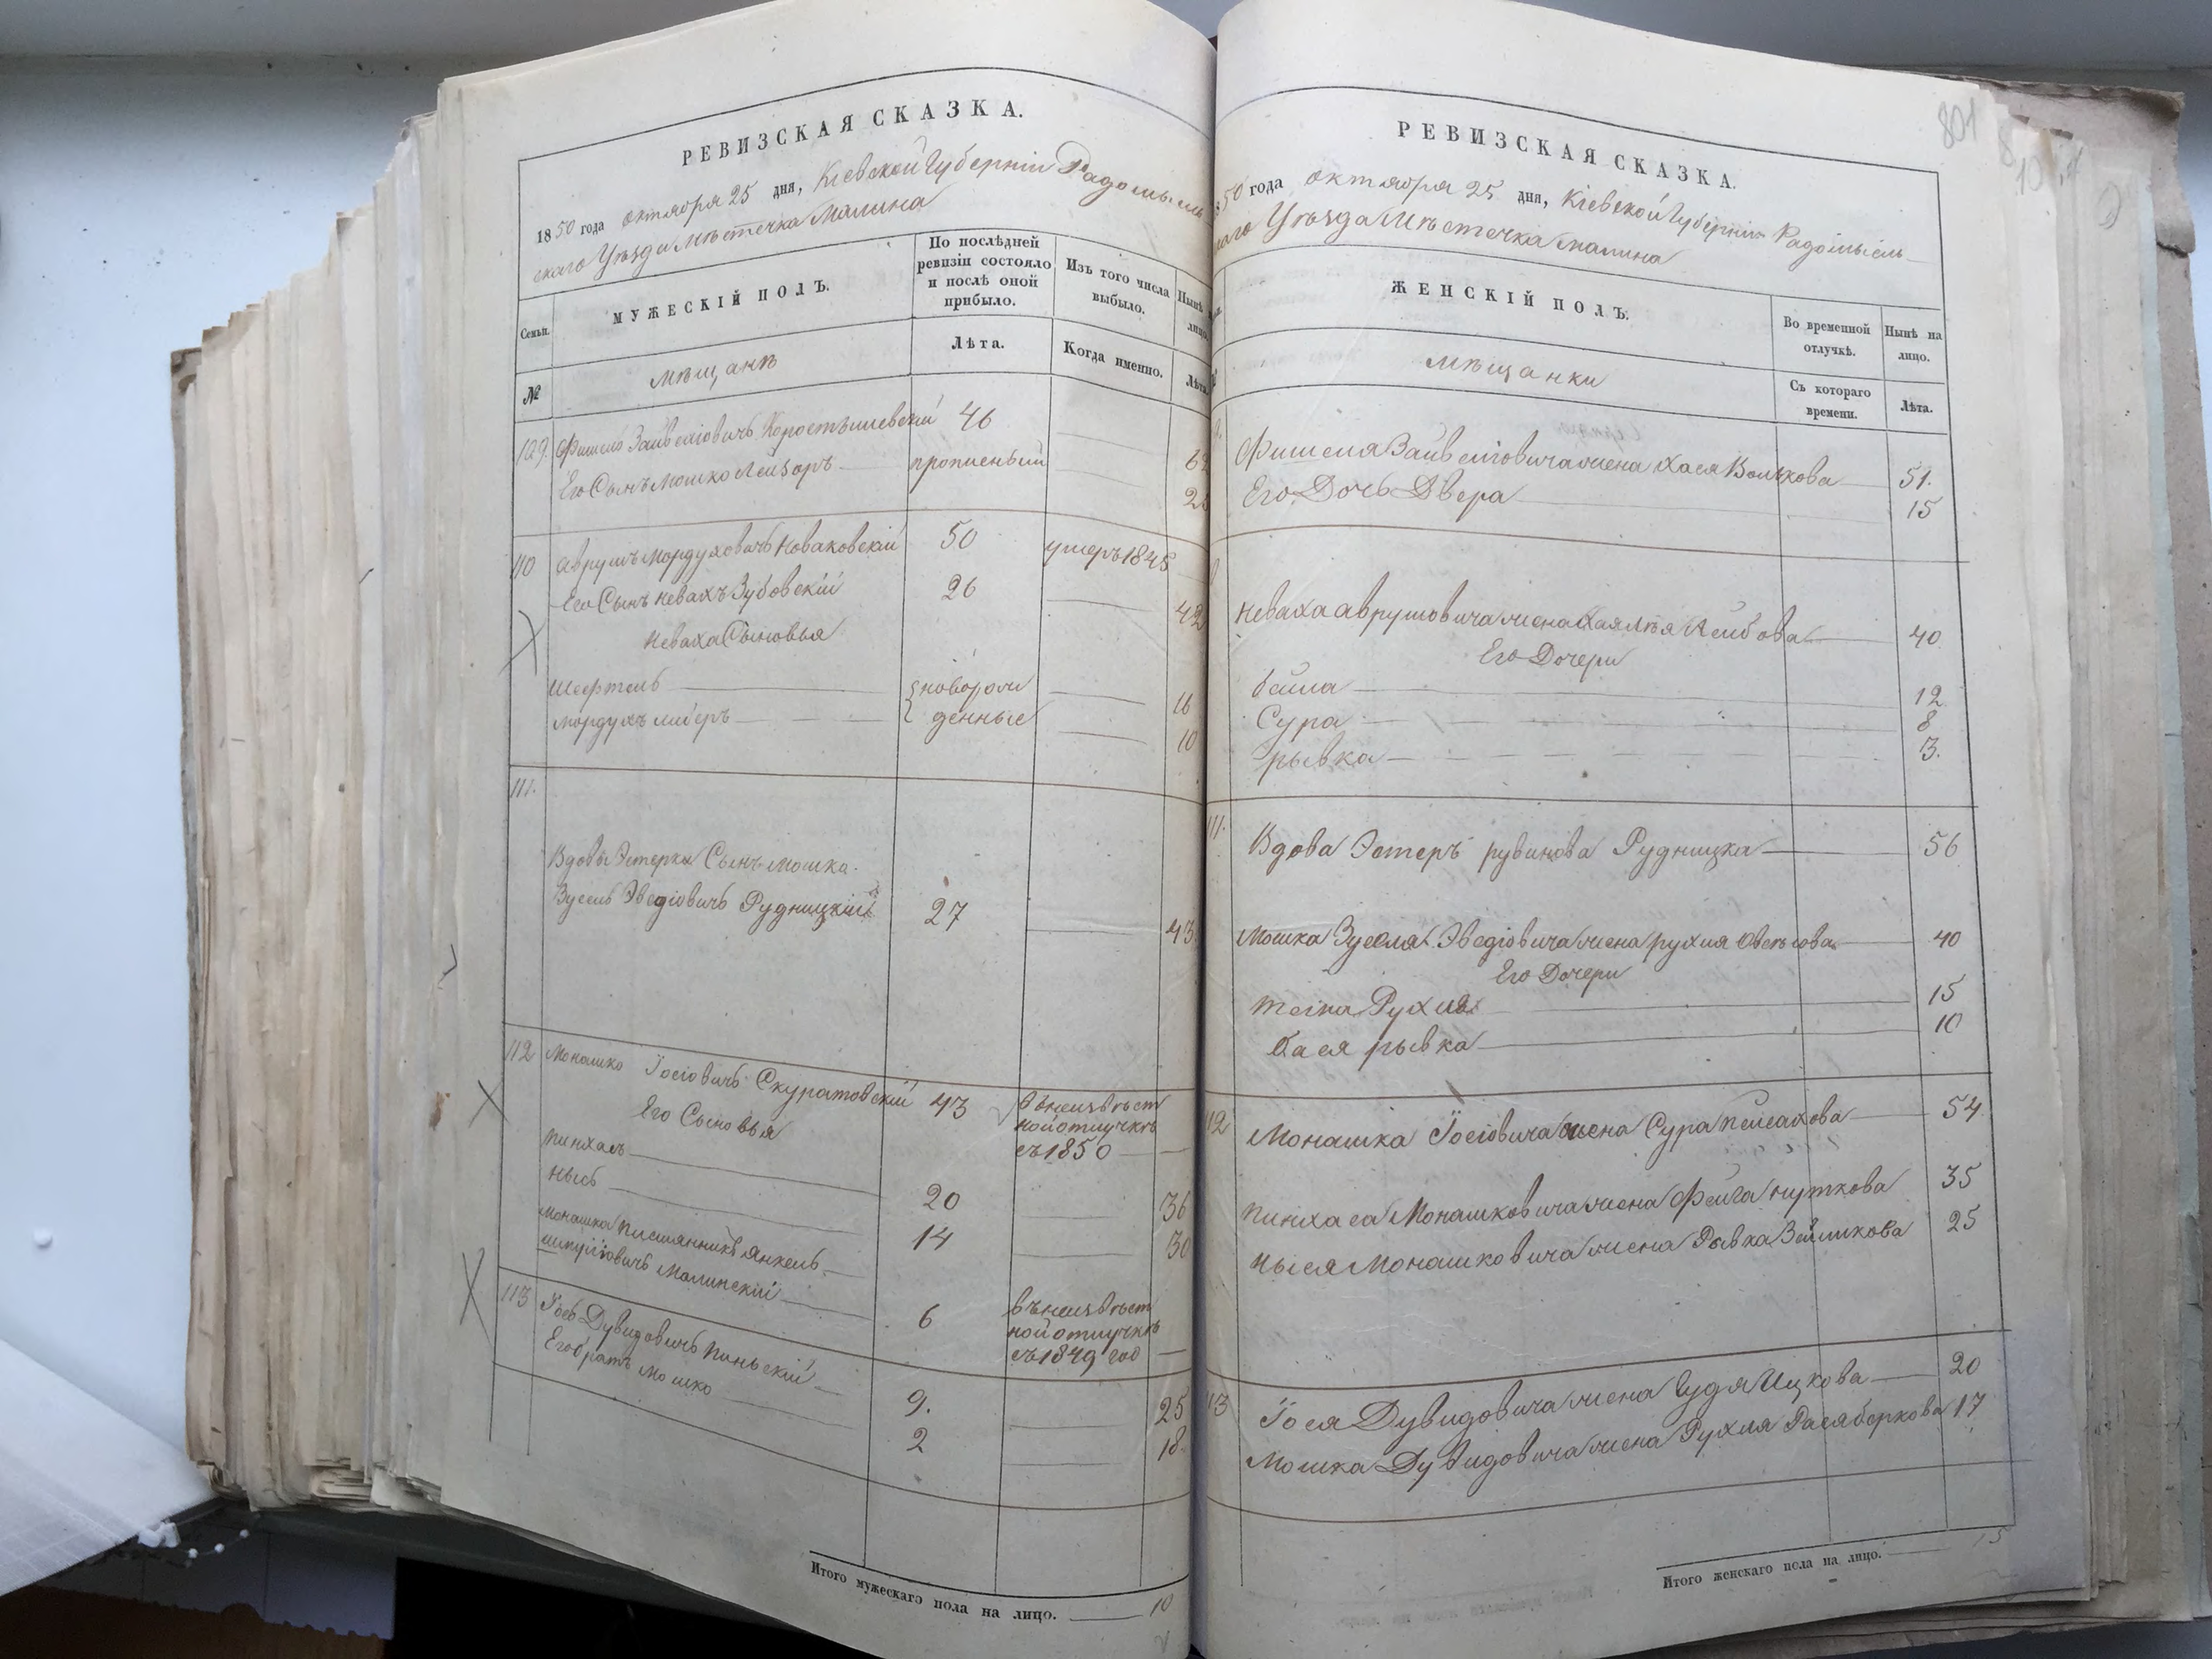 РЕВИЗСКАЯ СКАЗКА.
1850 года октября 25 дня, Кіевской Губерніи Радомысль
скаго Уѣзда Мѣстечка Малина
Семьи.
МУЖЕСКІЙ ПОЛЪ.
По послѣдней
ревизіи состояло
и послѣ оной
прибыло.
Изъ того числа
выбыло.
Нынѣ
лицо
№
мѣщанѣ
Лѣта.
Когда именно.
Лѣта
109. Фишель Зайвеліовичъ Коростышевскій 46 62
Его Сынъ Мошко Лейзоръ прописный
110 Аврумъ Мордуховичъ Новаковскій 50 умеръ 1845
Его Сынъ Невахъ Зубовскій 26 42
Неваха Сыновья
Шефтель новорож 16
Мордухъ Либеръ денные 10
111.
Вдовы Эстерки Сынъ Мошка
Зусель Эведіовичъ Рудницкій 27 43
112 Монашко Іосіовичъ Скуратовскій 43 въ неизвѣст
ной отлучкѣ
съ 1850
Его Сыновья
Пинхасъ 20 36
Нысь 14 30
Монашка Янкель
Малинскій 6 въ неизвѣст
ной отлучкѣ
съ 1849 год
113 Іось Дувидовичъ Паньскій 9. 25
Его братъ Мошко 2 18
Итого мужескаго пола на лицо. 10
РЕВИЗСКАЯ СКАЗКА.
801
50 года октября 25 дня, Кіевской Губерніи Радомысль
скаго Уѣзда Мѣстечка Малина
ЖЕНСКІЙ ПОЛЪ.
Во временной
отлучкѣ.
Нынѣ на
лицо.
мѣщанки
Съ котораго
времени.
Лѣта.
Фишеля Зайвеліовича жена Хася Волькова 51.
Его Дочь Двера 15
Неваха Аврумовича жена Хая Лея Лейбова 40
Его Дочери
Бейла 12
Сура 8
Рывка 3.
111. Вдова Эстеръ Рувинова Рудницка 56
Мошка Зуселя Эведіовича жена Рухля 40
Его Дочери
Рухля 15
Бася Рывка 10
112 Монашка Іосіовича жена Сура Пейсахова 54
Пинхаса Монашковича жена Фейга Нуткова 35
Ныся Монашковича жена Рывка Зейликова 25
113 Іося Дувидовича жена Гудя Ицкова 20
Мошка Дувидовича жена Рухля Рася Беркова 17
Итого женскаго пола на лицо. 15